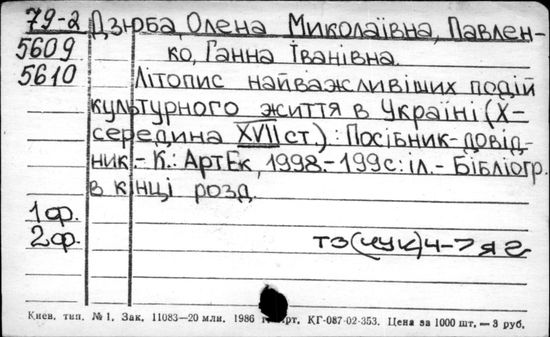 79-2 Дзюба, Олена Миколаївна, Павлен-
5609 ко, Ганна Іванівна.
5610 Літопис найважливіших подій
культурного життя в Україні (X-
середина XVII ст.) : Посібник-довід-
ник.- К.: АртЕк, 1998.-199с: іл.- Бібліогр.
в кінці розд.
1ф.
2ф. ТЗ(4УК)4-7 я 2
Киев. тип. № 1. Зак. 11083—20 млн. 1986 Арт. КГ-087-02-353. Цена за 1000 шт.— 3 руб.